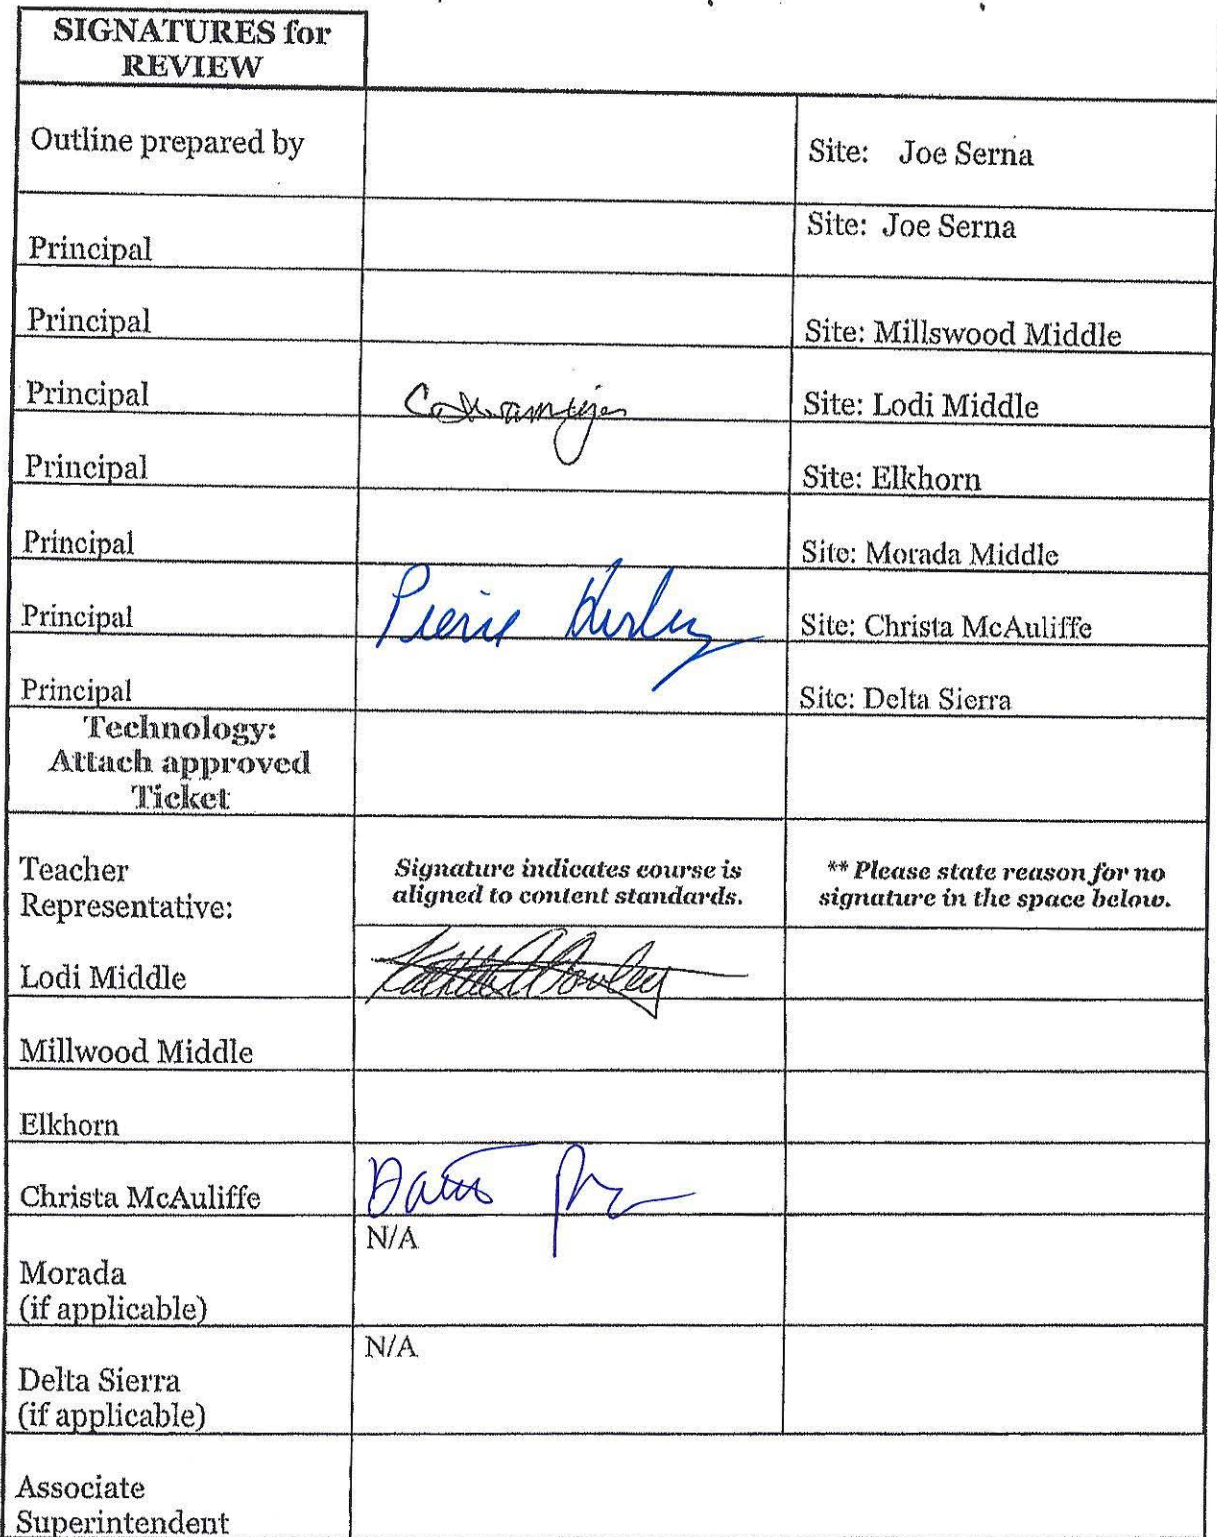 SIGNATURES for
REVIEW
Outline prepared by
Site: Joe Serna
Principal
Site: Joe Serna
Principal
Site: Millswood Middle
Principal
Site: Lodi Middle
Principal
Site: Elkhorn
Principal
Site: Morada Middle
Principal
Pierre
Site: Christa McAuliffe
Principal
Site: Delta Sierra
Technology:
Attach approved
Ticket
Teacher
Representative:
Signature indicates course is
aligned to content standards.
** Please state reason for no
signature in the space below.
Lodi Middle
Millwood Middle
Elkhorn
Christa McAuliffe
Morada
(if applicable)
N/A
Delta Sierra
(if applicable)
N/A
Associate
Superintendent